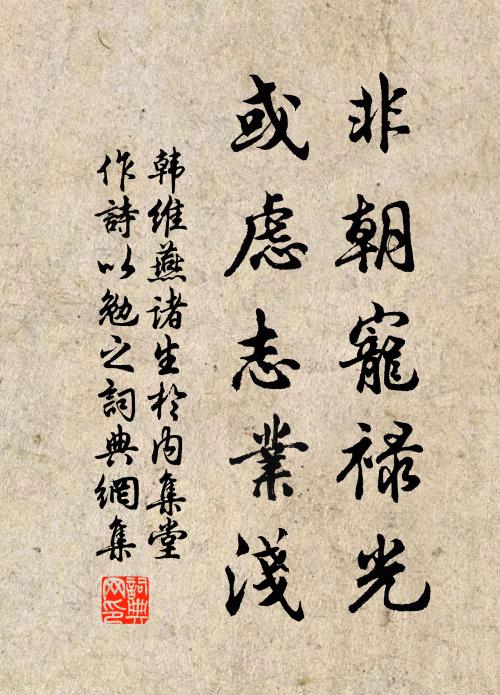 非朝寵祿光
或慮志業淺
韩維燕诸生於内集堂
作詩以勉之詞典網集
詞典網印